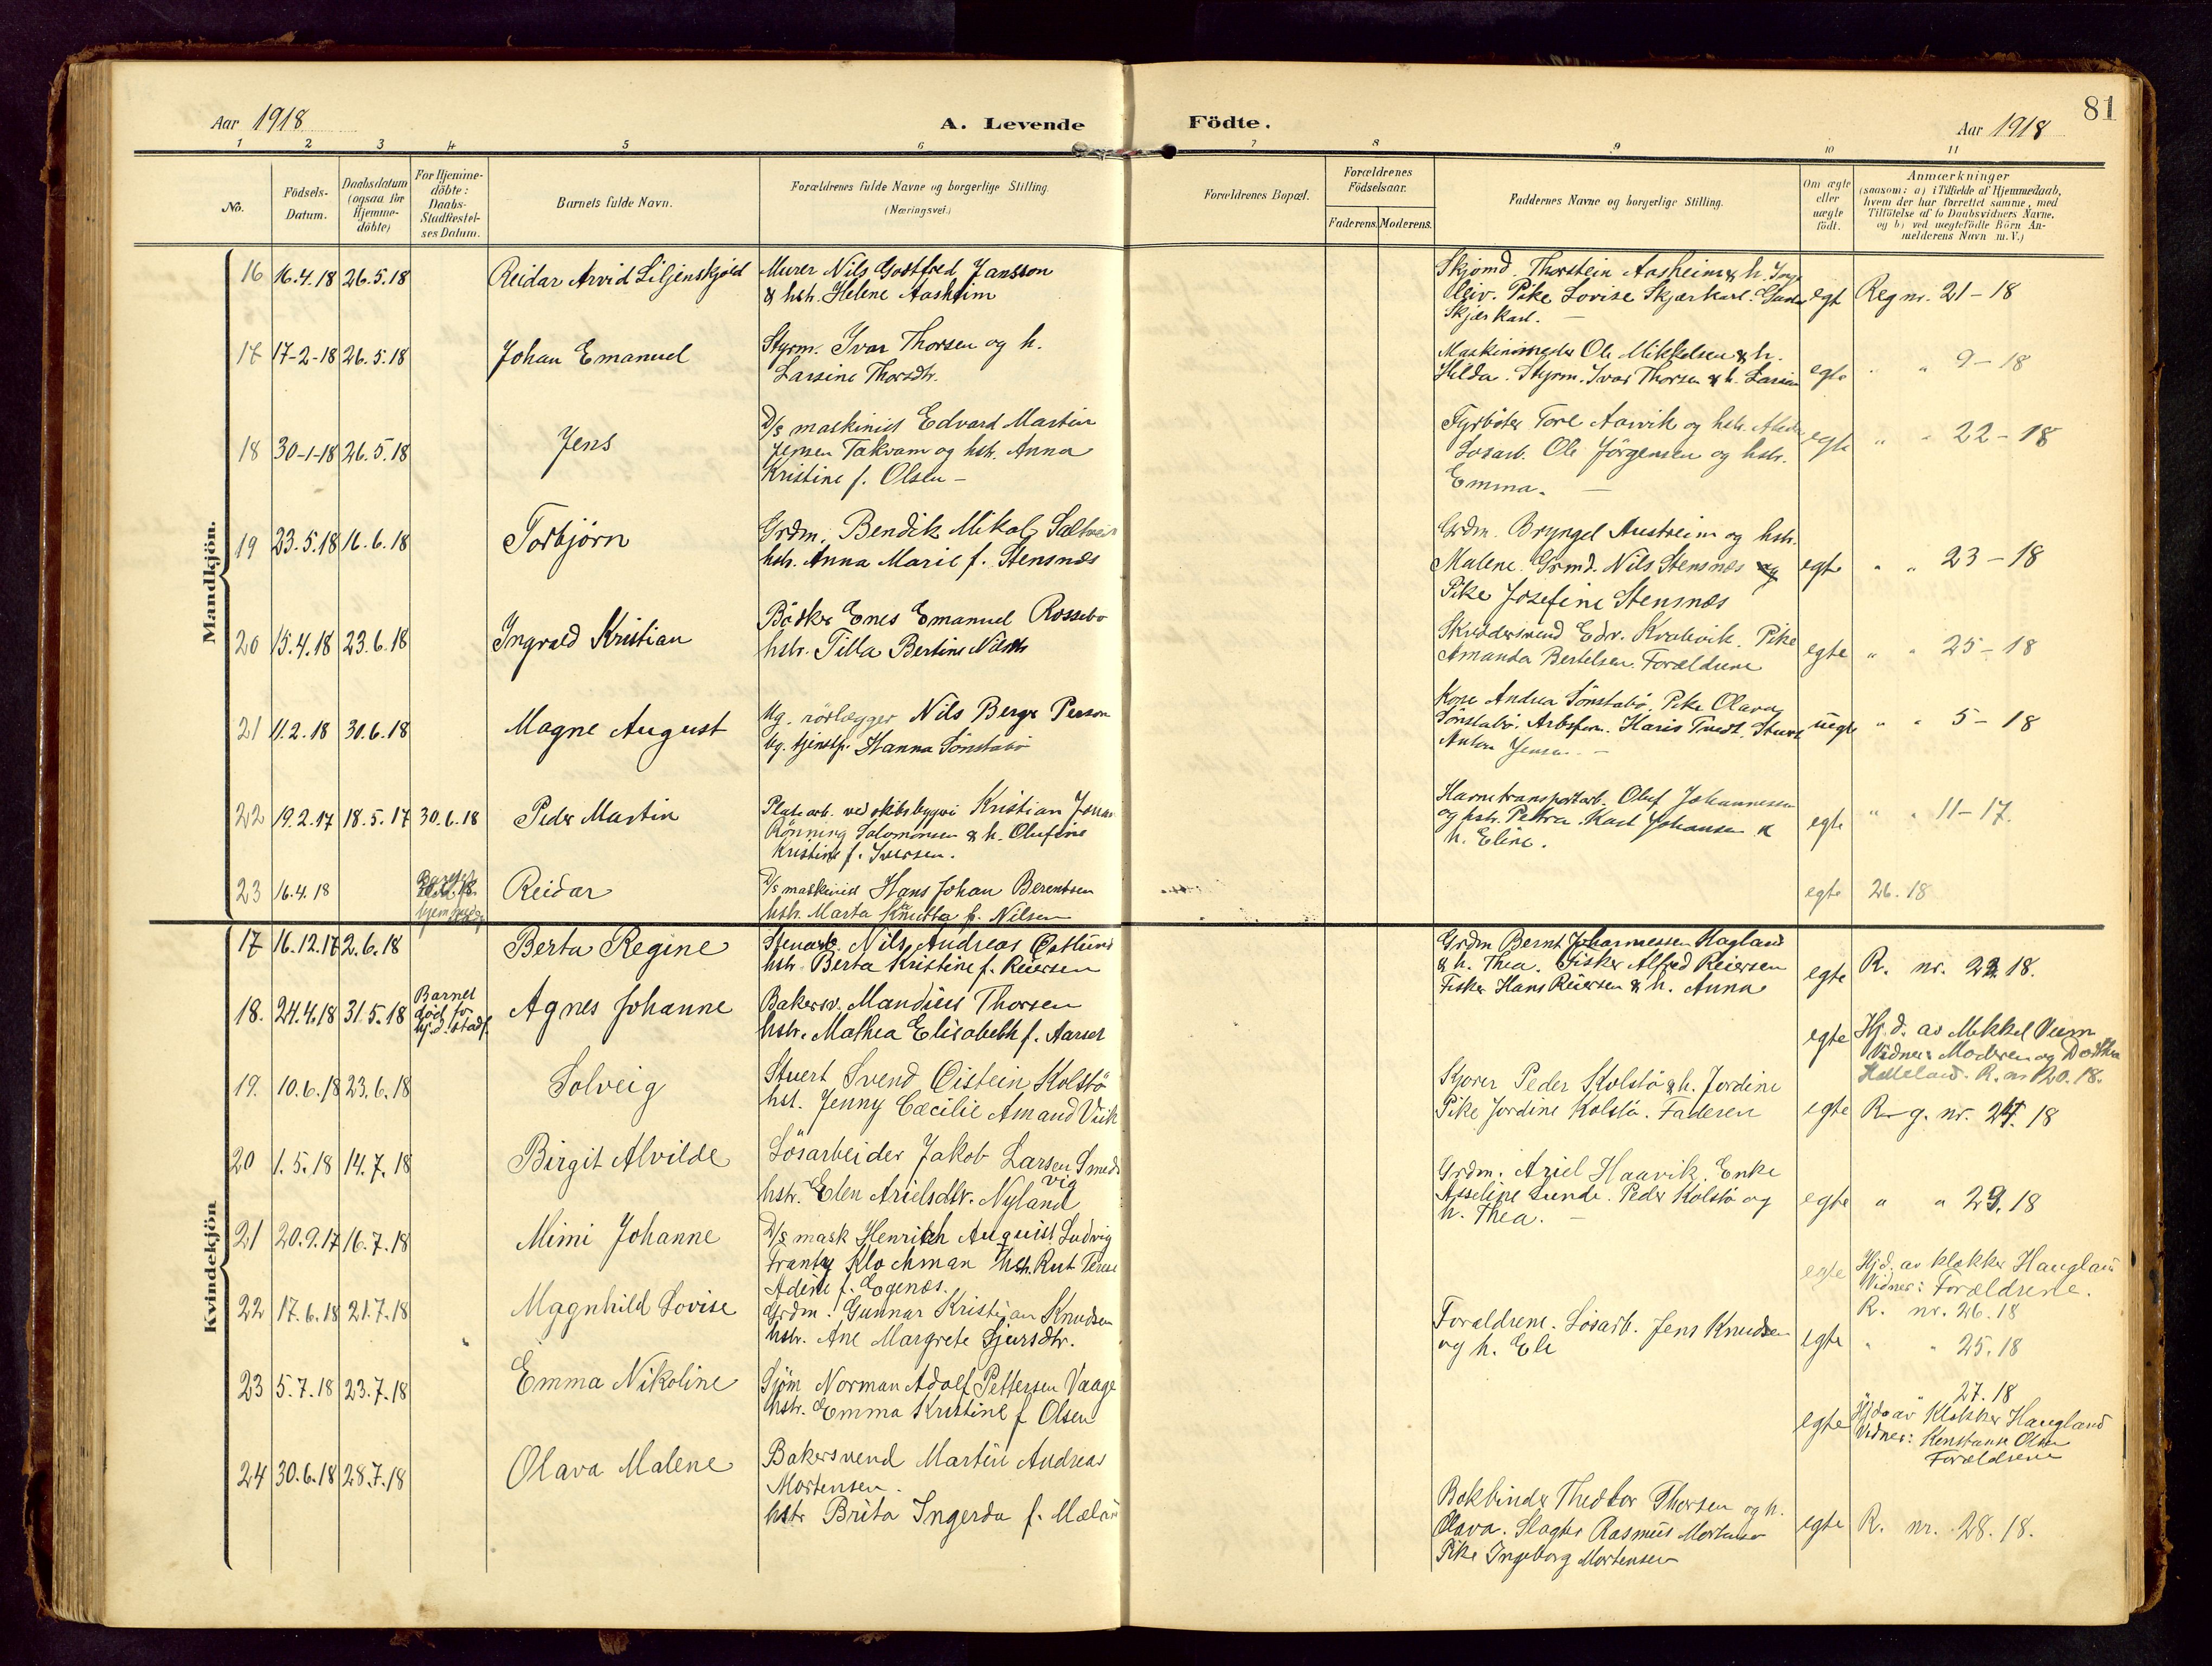 81
Aar 1918
A. Levende
Födte.
Aar 1918
1 2 3 4 5 6 7 8 9 10 11
No.
Födsels-
Datum.
Daabsdatum
(ogsaa for
Hjemme-
döbte)
For Hjemme-
döbte:
Daabs-
Stadfæstel-
ses Datum.
Barnets fulde Navn.
Forældrenes fulde Navne og borgerlige Stilling.
(Næringsvei.)
Forældrenes Bopæl.
Forældrenes
Födselsaar.
Faderens. Moderens.
Faddernes Navne og borgerlige Stilling.
Om ægte
eller
uægte
födt.
Anmærkninger
(saasom: a) i Tilfælde af Hjemmedaab,
hvem der har forrettet samme, med
Tilföielse af to Daabsvidners Navne.
og b) ved uegtefödte Börn An-
melderens Navn m. V.)
Mandkjön.
16 16.4.18 26.5.18 Reidar Arvid Liljenskjold
Murer Nils Gottfred Jansson
& hstr. Helene Aasheim
Skjømd. Thorstein Aasheim & h.
Pike Lovise Skjærkarl.
Skjærkarl.
egt
Reg nr. 21-18
17 17-2-18 26.5.18 Johan Emanuel
Styrm. Ivar Thorsen og h.
Larsine Thorsdtr.
Ole Mikkelsen & h.
Hilda. Styrm. Ivar Thorsen & h.
egte
" " 9-18
18 30-1-18 26.5.18 Jens
D/s maskinist Edvard Martin
Jensen Takvam og hstr. Anna
Kristine f. Olsen -
Fyrböter Tore Aarvik og hstr.
Løsarb. Ole Jörgensen og hstr.
Emma. -
egte
" " 22-18
19 23.5.18 16.6.18 Torbjörn
Grdm. Bendik Mikal
hstr. Anna Marie f. Stensnæs
Grdm. Bryngel Austreim og hstr.
Malene. Grmd. Nils Stensnæs og
Pike Josefine Stensnæs
egte
" " 23-18
20 15.4.18 23.6.18 Ingvald Kristian
Bödker Enes Emanuel Rossebø
hstr. Tilla Bertine
Skræddersvend Edv. Kvalevik. Pike
Amanda Bertelsen. Forældrene
egte
" " 25-18
21 11.2.18 30.6.18 Magne August
Ug. rörlægger Nils Berge Person
Ug. tjenestp. Hanna Sönstabö
Kone Andrea Sönstabö. Pike Olava
Sönstabö. Arbsform. Haris Tvedt.
Jensen -
uegte
" " 5-18
22 19.2.17 18.5.17 30.6.18 Peder Martin
Platearb. ved skibsbyggeri Kristian
Rönning Salomonsen & h. Olufine
Kristine f. Iversen.
Havnetransportarb. Oluf Johannesen
og hstr. Petra. Karl Johansen &
h. Eline.
egte
" " 11-17.
23 16.4.18 Reidar
D/s maskinist Hans Johan Berentsen
hstr. Marta f. Nilsen
egte
26.18
Kvindekjön
17 16.12.17 2.6.18 Berta Regine
Nils Andreas Östlund
hstr. Berta Kristine f. Reiersen
Grdm Bernt Johannessen Hagland
& h. Thea. Fisker Alfred Reiersen
Fisker Hans Reiersen & h. Anna
egte
R. nr. 22.18.
18. 24.4.18 31.5.18
Barnet
død før
hj.d. stadf.
Agnes Johanne
Bakersv. Mandius Thorsen
hstr. Mathea Elisabeth f.
egte
Hj.d. av Mikkel
Vidner: Moderen og
R. nr 20.18.
19. 10.6.18 23.6.18 Solveig
Stuert Svend Öistein Kolstö
hst. Jenny Cæcilie Amand Viik
Kjører Peder Kolstö & h. Jordine
Pike Jordine Kolstö. Faderen
egte
Reg. nr. 24.18
20 1.5.18 14.7.18 Birgit Alvilde
Lösarbeider Jakob Larsen Smeds
vig
hstr. Elen Arielsdtr. Nyland
Grdm. Ariel Haavik. Enke
Asseline Lunde. Peder Kolstö og
h. Thea. -
egte
" " 29.18
21 20.9.17 16.7.18 Mimi Johanne
D/s mask Henrich August Ludvig
Frantz Klochman hstr. Rut
Adene f. Egenæs.
egte
Hj.d. av klokker Haugland
Vidner: Forældrene.
R. nr. 26.18
22 17.6.18 21.7.18 Magnhild Lovise
Grdm. Gunnar Kristian Knudsen
hstr. Ane Margrete Sjursdtr.
Forældrene. Løsarb. Jens Knudsen
og h. Eli
egte
" " 25.18
23 5.7.18 23.7.18 Emma Nikoline
Sjöm Norman Adolf Pettersen Vaage
hstr. Emma Kristine f Olsen
egte
27.18
Hj.d. av Klokker Haugland
Vidner: Konstanse Olsen
Forældrene
24 30.6.18 28.7.18 Olava Malene
Bakersvend Martin Andreas
Mortensen.
hstr Brita Ingerda f.
Bokbinder Theodor Thorsen og h.
Olava. Slagter Rasmus Mortensen
Pike Ingeborg Mortensen
egte
R. nr. 28.18.